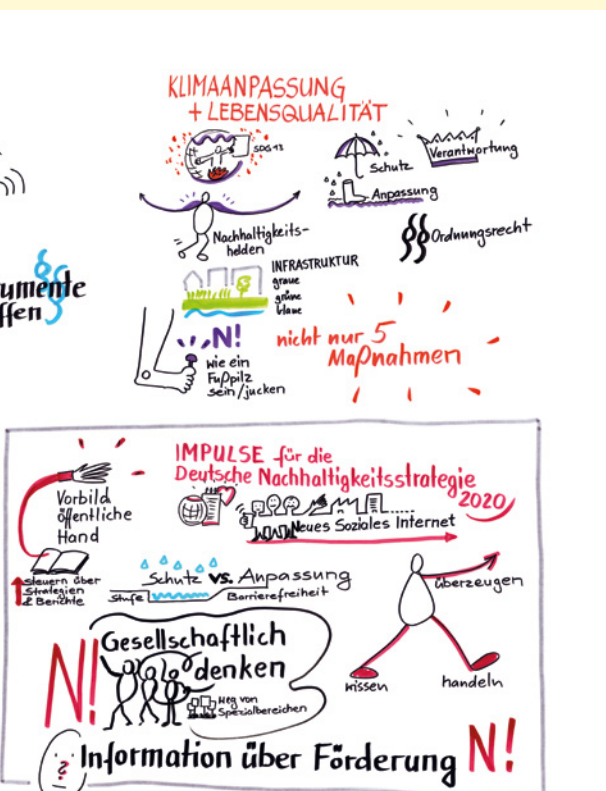 KLIMAANPASSUNG
+ LEBENSQUALITÄT
SDG 13
Schutz
Verantwortung
Anpassung
Nachhaltigkeits-
helden
§§ Ordnungsrecht
umente
ffen
§§
INFRASTRUKTUR
graue
grüne
blaue
N!
wie ein
Fußpilz
sein/jucken
nicht nur 5
Maßnahmen
IMPULSE für die
Deutsche Nachhaltigkeitsstrategie
2020
Vorbild
öffentliche
Hand
Neues Soziales Internet
steuern über
Strategien
& Berichte
Schutz vs. Anpassung
Stufe
Barrierefreiheit
überzeugen
wissen
handeln
N!
Gesellschaftlich
denken
Weg von
Spezialbereichen
?
Information über Förderung N!